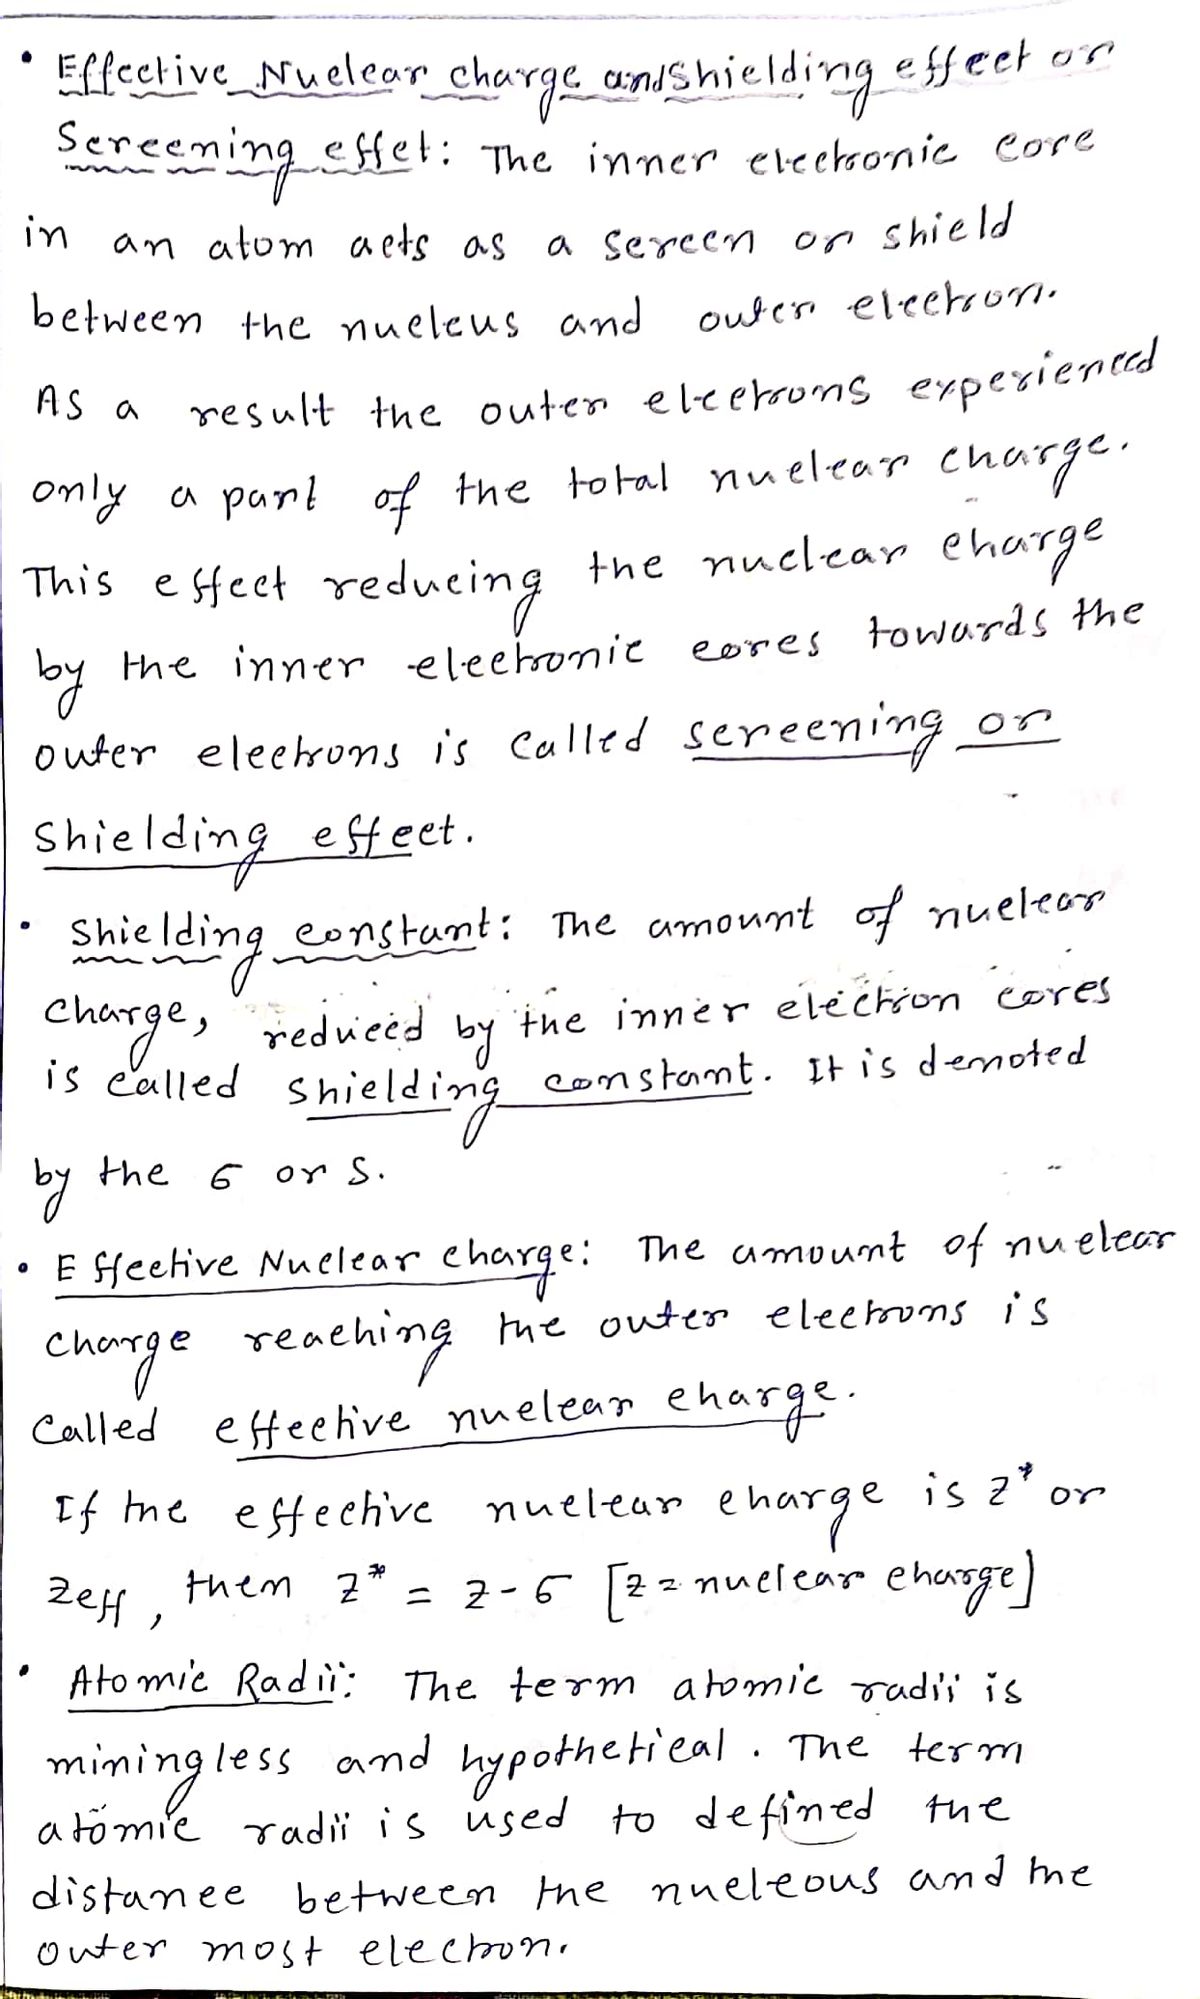 • Effective Nuclear charge and shielding effect or
Screening effet: The inner electronic core
in an atom acts as a screen or shield
between the nucleus and outer electron.
As a result the outer electrons experienced
only a part of the total nuclear charge.
This effect reducing the nuclear charge
by the inner electronic cores towards the
outer electrons is called screening or
shielding effect.
• Shielding constant: The amount of nuclear
charge, reduced by the inner electron cores
is called shielding constant. It is denoted
by the σ or S.
• Effective Nuclear charge: The amount of nuclear
charge reaching the outer electrons is
called effective nuclear charge.
If the effective nuclear charge is Z* or
Zeff, then Z* = Z - σ [Z = nuclear charge]
• Atomic Radii: The term atomic radii is
miningless and hypothetical. The term
atomic radii is used to defined the
distance between the nucleous and the
outer most electron.